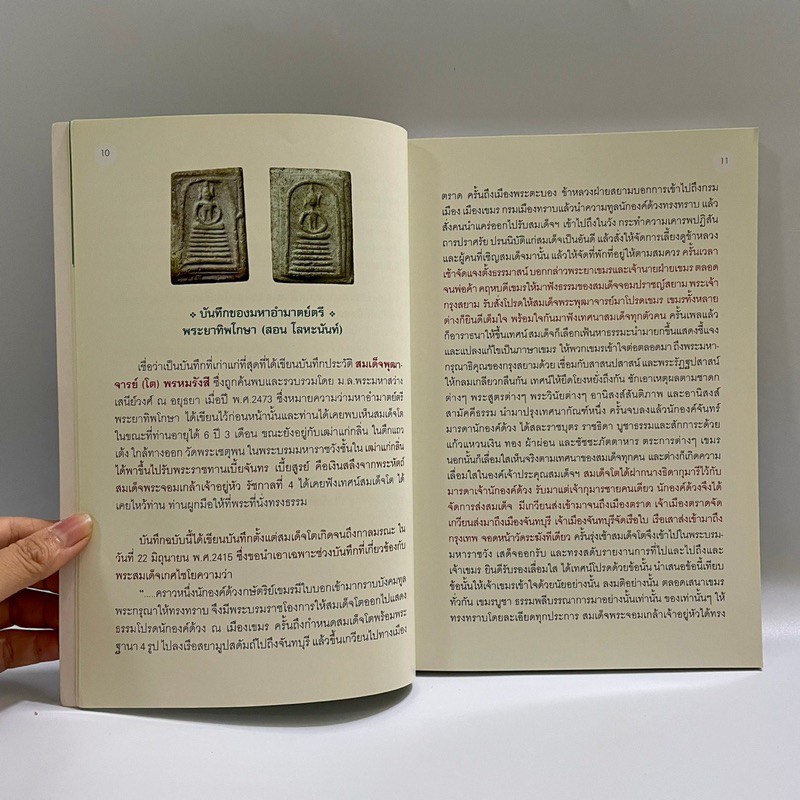 10
❖ บันทึกของมหาอำมาตย์ตรี ❖
พระยาทิพโกษา (สอน โลหะนันท์)
เชื่อว่าเป็นบันทึกที่เก่าแก่ที่สุดที่ได้เขียนบันทึกประวัติ สมเด็จพุฒา-
จารย์ (โต) พรหมรังสี ซึ่งถูกค้นพบและรวบรวมโดย ม.ล.พระมหาสว่าง
เสนีย์วงศ์ ณ อยุธยา เมื่อปี พ.ศ.2473 ซึ่งหมายความว่ามหาอำมาตย์ตรี
พระยาทิพโกษา ได้เขียนไว้ก่อนหน้านั้นและท่านได้เคยพบเห็นสมเด็จโต
ในขณะที่ท่านอายุได้ 6 ปี 3 เดือน ขณะยังอยู่กับเฒ่าแก่กลิ่น ในตึกแถว
เต๊ง ใกล้ทางออก วัดพระเชตุพน ในพระบรมมหาราชวังชั้นใน เฒ่าแก่กลิ่น
ได้พาขึ้นไปรับพระราชทานเบี้ยจันทร เบี้ยสูรย์ คือเงินสลึงจากพระหัตถ์
สมเด็จพระจอมเกล้าเจ้าอยู่หัว รัชกาลที่ 4 ได้เคยฟังเทศน์สมเด็จโต ได้
เคยไหว้ท่าน ท่านผูกมือให้ที่พระที่นั่งทรงธรรม
บันทึกฉบับนี้ได้เขียนบันทึกตั้งแต่สมเด็จโตเกิดจนถึงกาลมรณะ ใน
วันที่ 22 มิถุนายน พ.ศ.2415 ซึ่งขอนำเอาเฉพาะช่วงบันทึกที่เกี่ยวข้องกับ
พระสมเด็จเกศไชโยความว่า
“.....คราวหนึ่งนักองค์ด้วงกษัตริย์เขมรมีใบบอกเข้ามากราบบังคมทูล
พระกรุณาให้ทรงทราบ จึงมีพระบรมราชโองการให้สมเด็จโตออกไปแสดง
ธรรมโปรดนักองค์ด้วง ณ เมืองเขมร ครั้นถึงกำหนดสมเด็จโตพร้อมพระ
ฐานา 4 รูป ไปลงเรือสยามูปสดัมถ์ไปถึงจันทบุรี แล้วขึ้นเกวียนไปทางเมือง
11
ตราด ครั้นถึงเมืองพระตะบอง ข้าหลวงฝ่ายสยามบอกการเข้าไปถึงกรม
เมือง เมืองเขมร กรมเมืองทราบแล้วนำความทูลนักองค์ด้วงทรงทราบ แล้ว
สั่งคนนำแคร่ออกไปรับสมเด็จฯ เข้าไปถึงในวัง กระทำความเคารพปฏิสัน
ถารปราศรัย ปรนนิบัติแก่สมเด็จเป็นอันดี แล้วสั่งให้จัดการเลี้ยงดูข้าหลวง
และผู้คนที่เชิญสมเด็จมานั้น แล้วให้จัดที่พักที่อยู่ให้ตามสมควร ครั้นเวลา
เช้าจัดแจงตั้งธรรมาสน์ บอกกล่าวพระยาเขมรและเจ้านายฝ่ายเขมร ตลอด
จนพ่อค้า คฤหบดีเขมรให้มาฟังธรรมของสมเด็จจอมปราชญ์สยาม พระเจ้า
กรุงสยาม รับสั่งโปรดให้สมเด็จพระพุฒาจารย์มาโปรดเขมร เขมรทั้งหลาย
ต่างก็ยินดีเต็มใจ พร้อมใจกันมาฟังเทศนาสมเด็จทุกตัวคน ครั้นพร้อมแล้ว
ก็อาราธนาให้ขึ้นเทศน์ สมเด็จก็เลือกเฟ้นหาธรรมะนำมายกขึ้นแสดงชี้แจง
และแปลงแก้ไขเป็นภาษาเขมร ให้พวกเขมรเข้าใจต่อตลอดมา ถึงพระมหา-
กรุณาธิคุณของกรุงสยามด้วย เชื่อมกับสาสนปสาสน์ และพระรัฏฐปสาสน์
ให้กลมเกลียวกลืนกัน เทศน์ให้ยืดโยงหยั่งถึงกัน ชักเอาเหตุผลตามชาดก
ต่างๆ พระสูตรต่างๆ พระวินัยต่างๆ อานิสงส์สันติภาพ และอานิสงส์
สามัคคีธรรม นำมาปรุงเทศนากัณฑ์หนึ่ง ครั้นจบลงแล้วนักองค์จันทร์
มารดานักองค์ด้วง ได้สละราชบุตร ราชธิดา บูชาธรรมและสักการะด้วย
แก้วแหวนเงิน ทอง ผ้าผ่อน และขัชชะภัตตาหาร ตระการต่างๆ เขมร
นอกนั้นก็เลื่อมใสเห็นจริงตามเทศนาของสมเด็จทุกคน และต่างก็เกิดความ
เลื่อมใสในองค์เจ้าประคุณสมเด็จฯ สมเด็จโตได้ฝากนางธิดากุมารีไว้กับ
มารดาเจ้านักองค์ด้วง รับมาแต่เจ้ากุมารชายคนเดียว นักองค์ด้วงจึงได้
จัดการส่งสมเด็จ มีเกวียนส่งเข้ามาจนถึงเมืองตราด เจ้าเมืองตราดจัด
เกวียนส่งมาถึงเมืองจันทบุรี เจ้าเมืองจันทบุรีจัดเรือใบ เรือเสาส่งเข้ามาถึง
กรุงเทพ จอดหน้าวัดระฆังทีเดียว ครั้นรุ่งเช้าสมเด็จโตจึงเข้าไปในพระบรม-
มหาราชวัง เสด็จออกรับ และทรงสดับรายงานการที่ไปและไปถึงและ
เจ้าเขมร ยินดีรับรองเลื่อมใส ได้เทศน์โปรดด้วยข้อนั้น นำเสนอข้อนี้เทียบ
ข้อนั้นให้เจ้าเขมรเข้าใจด้วยนัยอย่างนั้น ลงมติอย่างนั้น ตลอดเสนาเขมร
ทั่วกัน เขมรบูชา ธรรมพลีบรรณาการมาอย่างนั้นเท่านั้น ของเท่านั้นๆ ให้
ทรงทราบโดยละเอียดทุกประการ สมเด็จพระจอมเกล้าเจ้าอยู่หัวได้ทรง